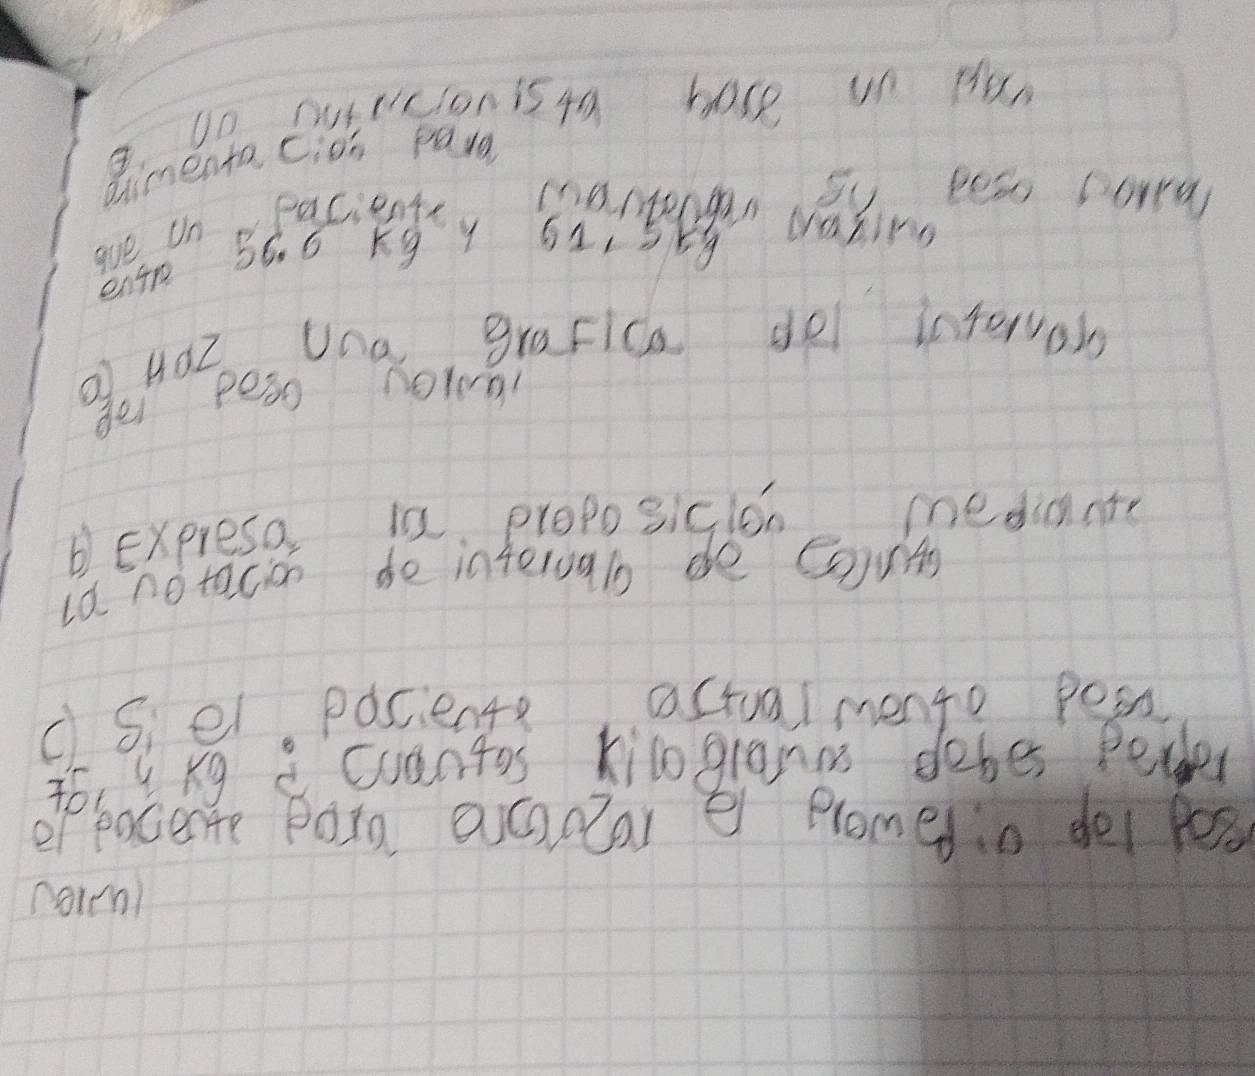 Un nutricionista hase un Plan
alimentación para
que un paciente mantengan su peso normal
entre 56.6 kg y 61,5 kg Maximo
a) Haz una grafica del intervalo
del peso normal
b) Expresa la proposición mediante
la notacion de intervalo de conjunto
c) Si el pasciente actualmente pesa
75,4 kg ¿ cuantos kilogramos debes Perder
el paciente para alcanzar el Promedio del Peso
normal